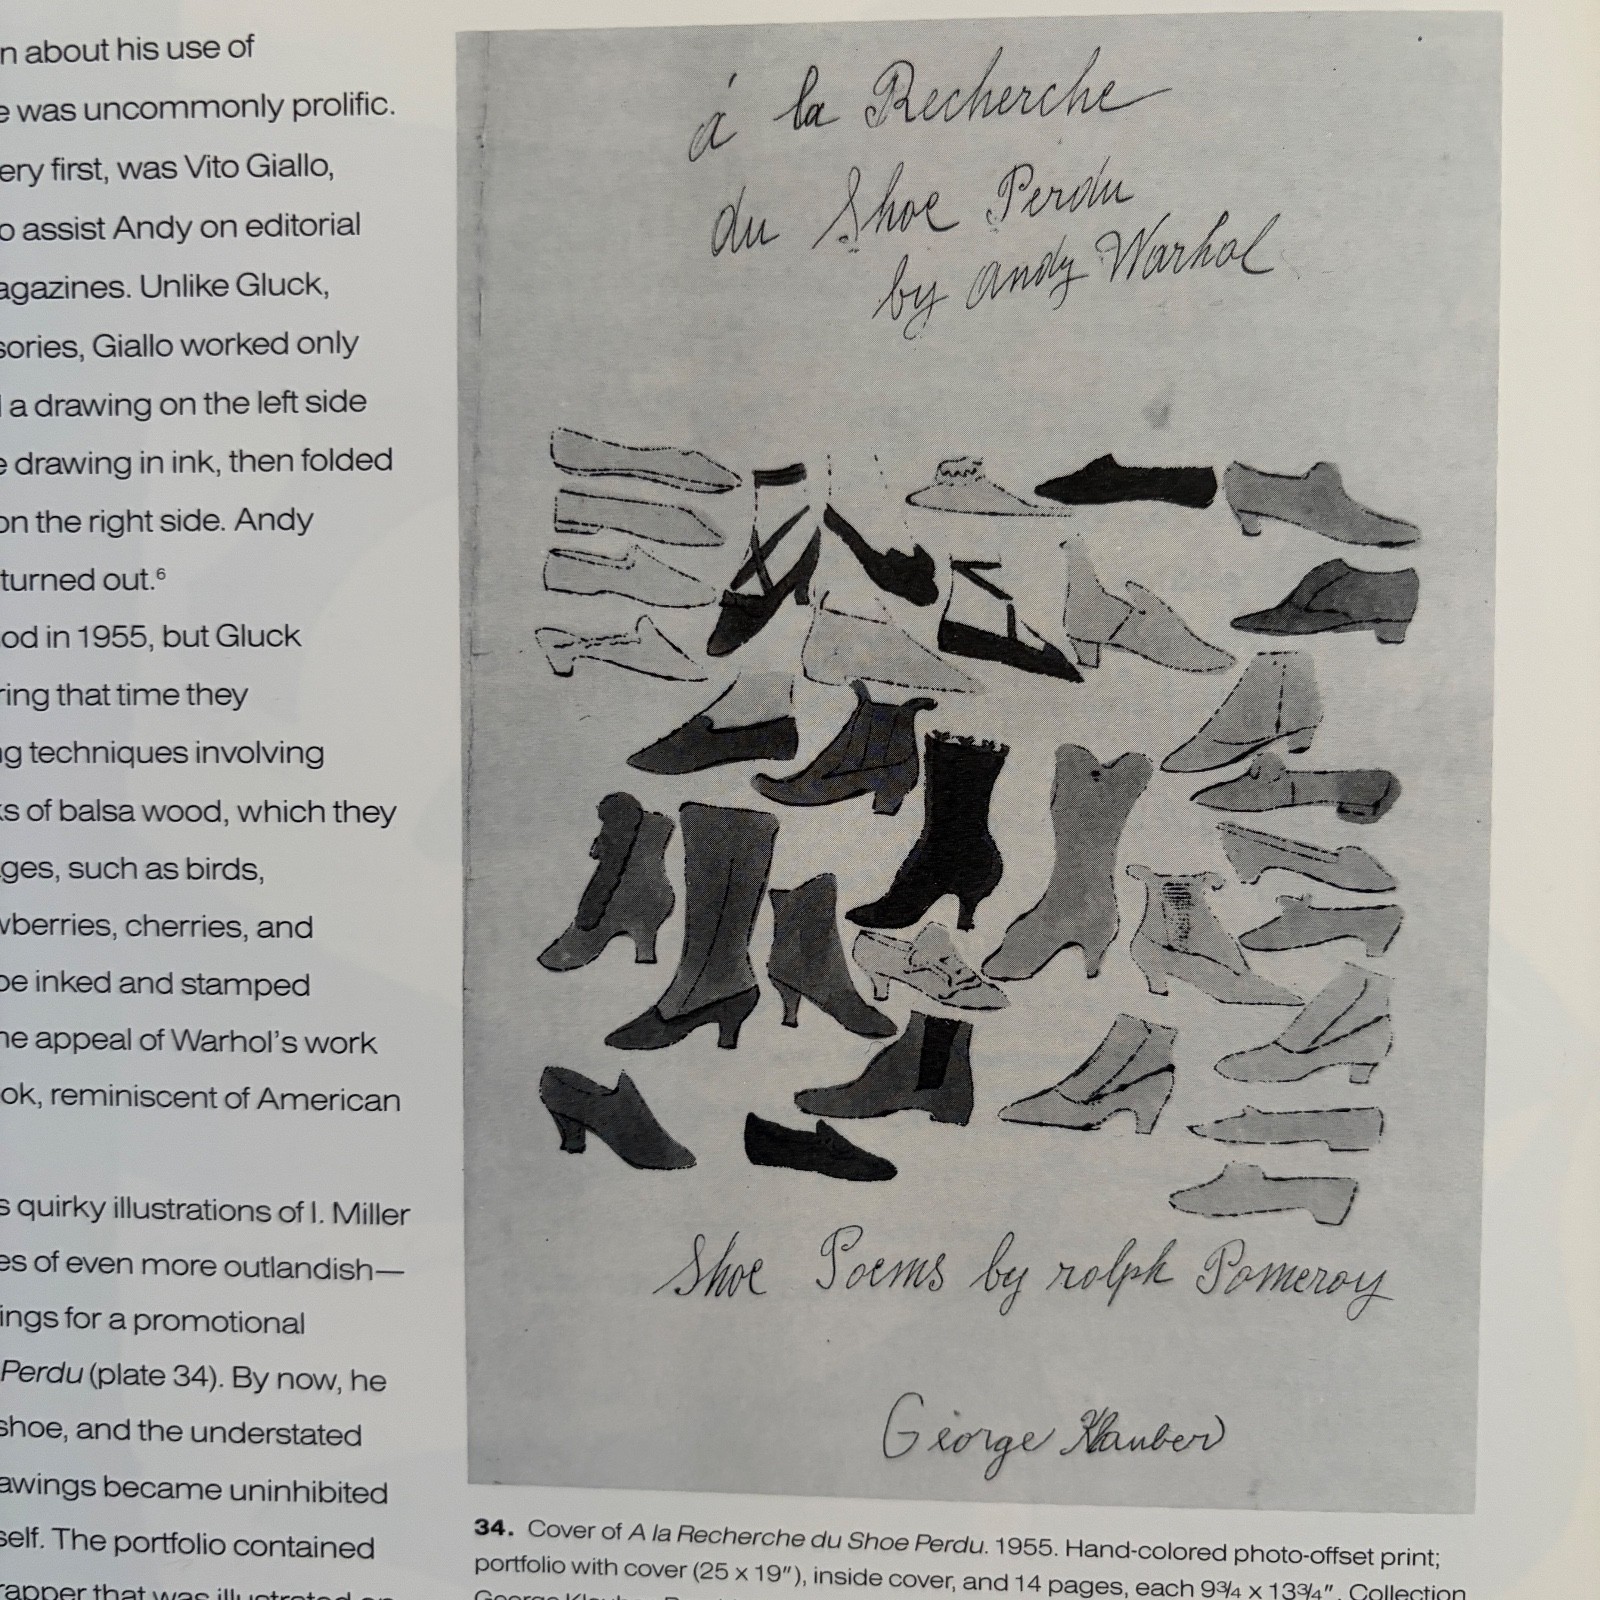 n about his use of
e was uncommonly prolific.
ery first, was Vito Giallo,
o assist Andy on editorial
agazines. Unlike Gluck,
sories, Giallo worked only
l a drawing on the left side
e drawing in ink, then folded
on the right side. Andy
turned out.⁶
od in 1955, but Gluck
ring that time they
ng techniques involving
ks of balsa wood, which they
ges, such as birds,
wberries, cherries, and
be inked and stamped
he appeal of Warhol's work
ok, reminiscent of American
s quirky illustrations of I. Miller
es of even more outlandish—
ings for a promotional
Perdu (plate 34). By now, he
shoe, and the understated
awings became uninhibited
self. The portfolio contained
rapper that was illustrated on
á la Recherche
du Shoe Perdu
by andy Warhol
Shoe Poems by rolph Pomeroy
George Klauber
34. Cover of A la Recherche du Shoe Perdu. 1955. Hand-colored photo-offset print;
portfolio with cover (25 x 19"), inside cover, and 14 pages, each 9¾ x 13¾". Collection
George Klauber